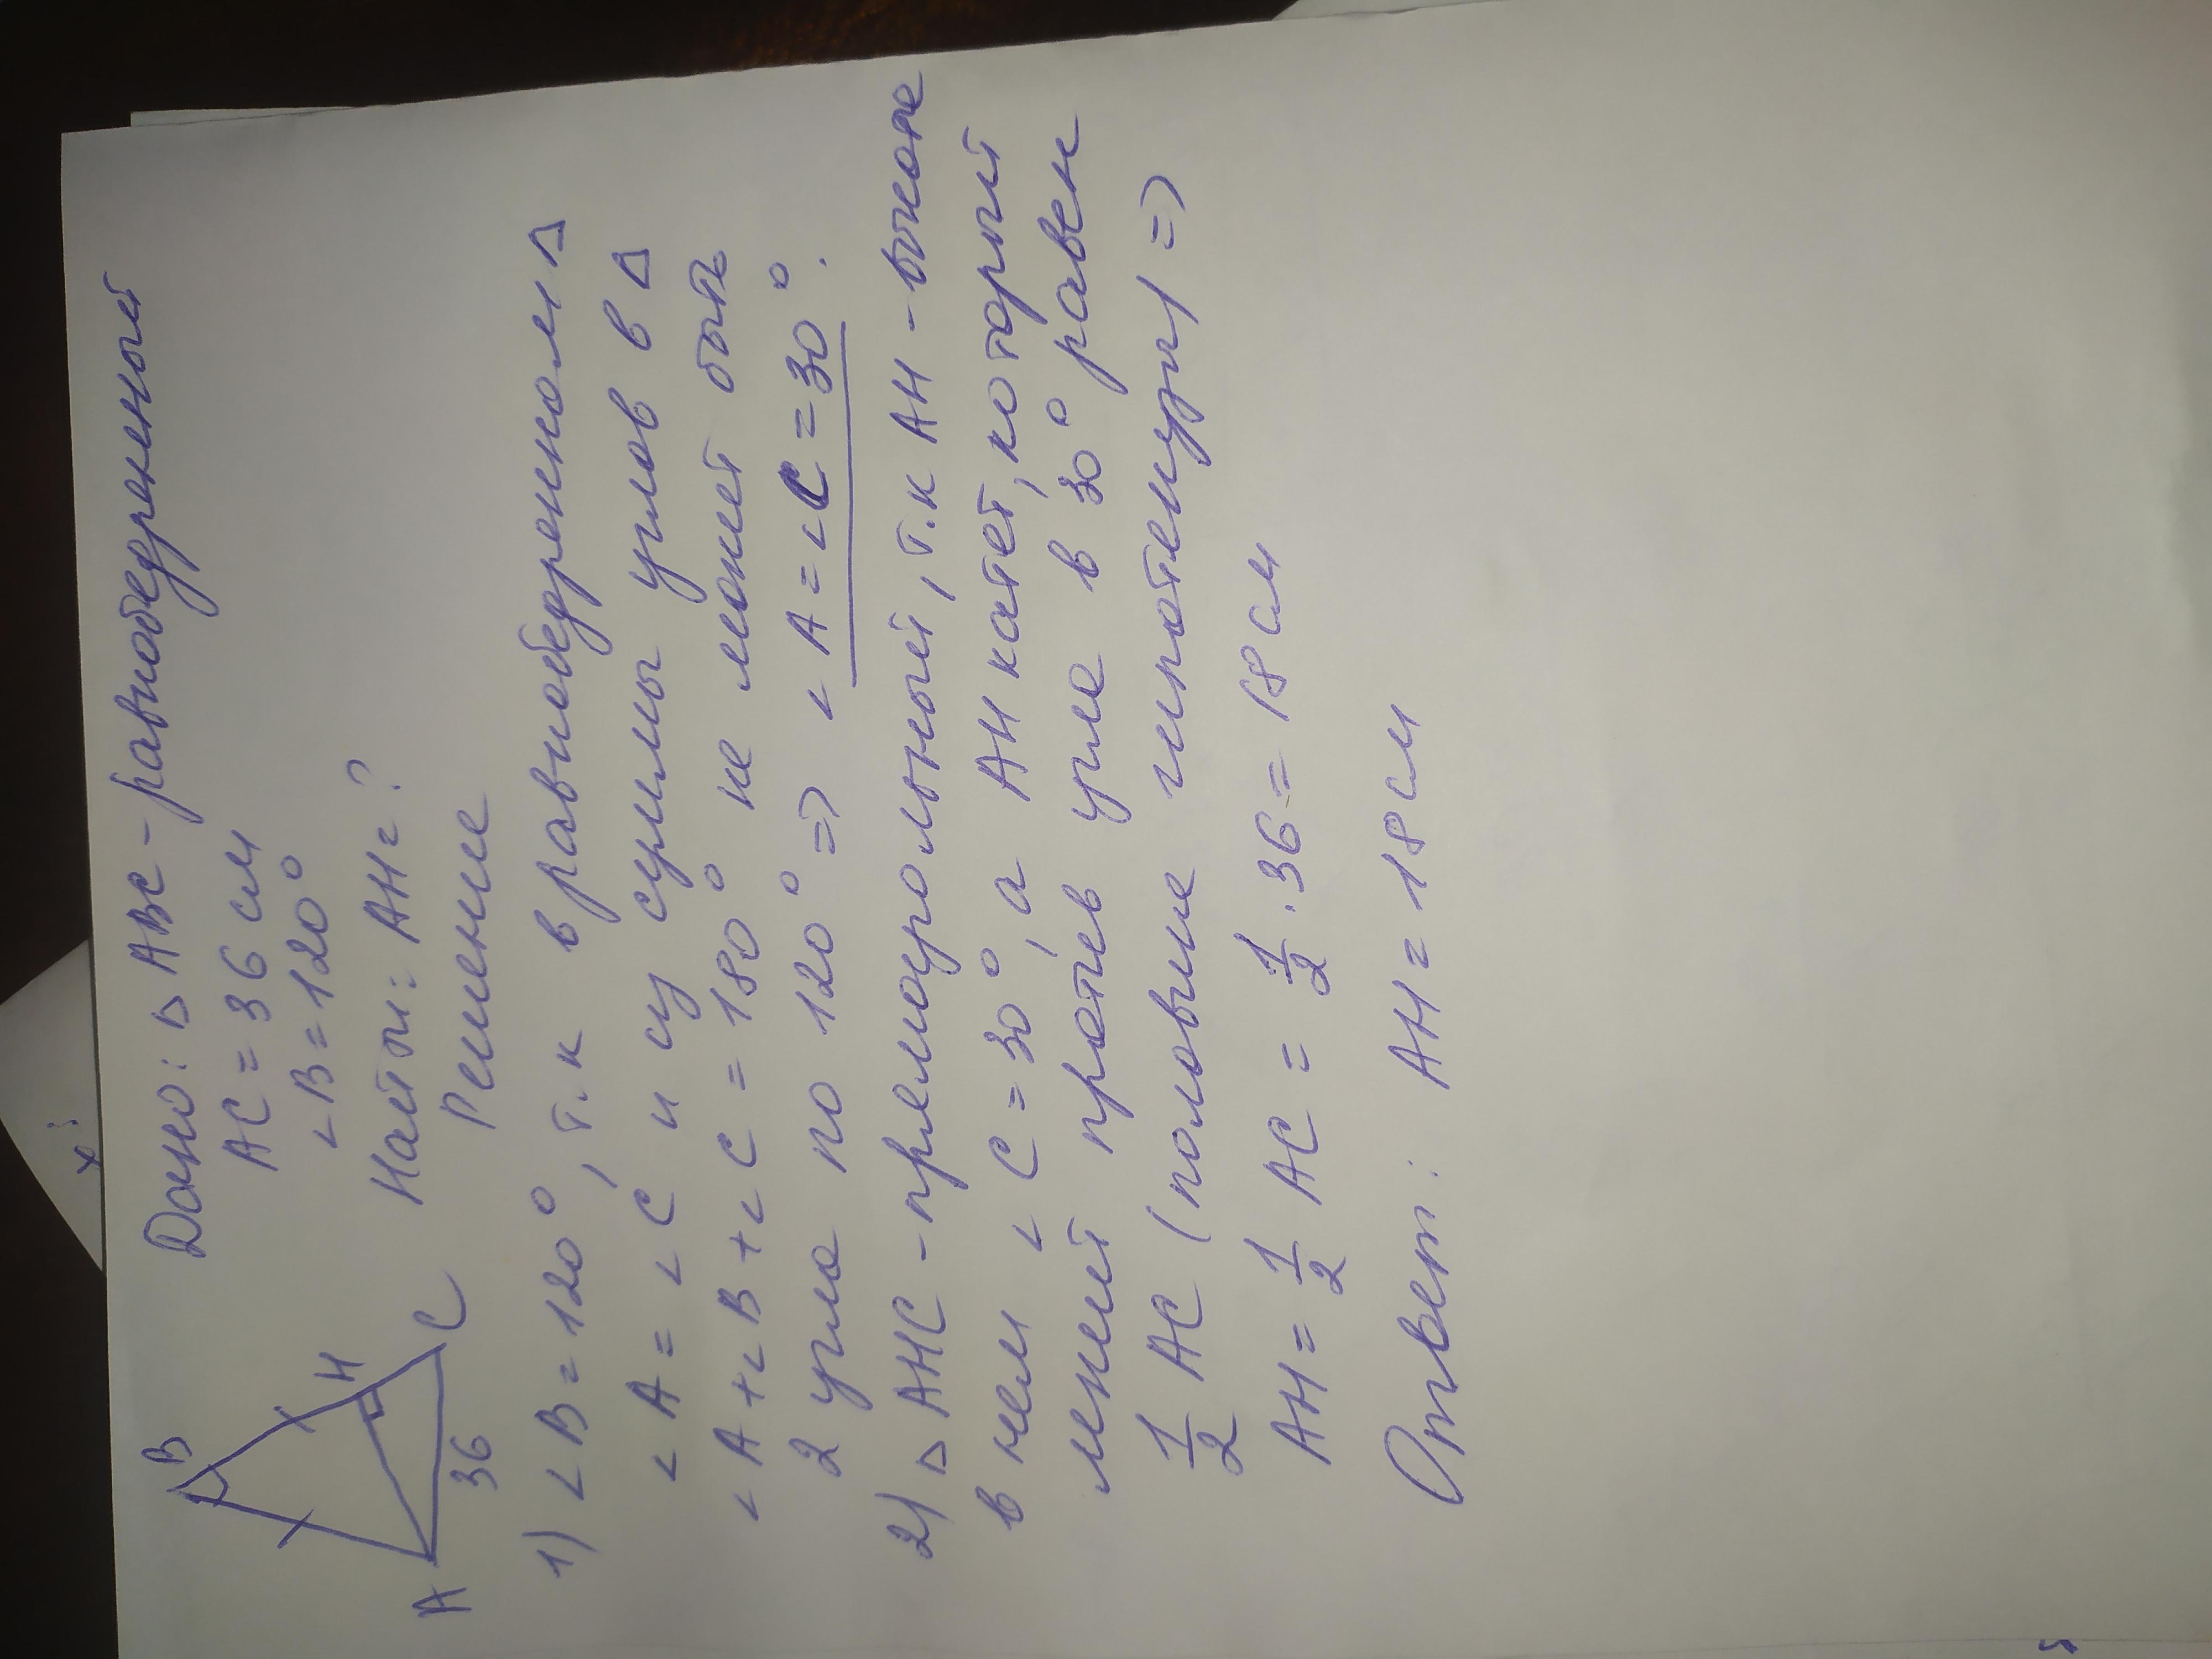 Дано: △ ABC - равнобедренный
AC = 36 см
∠B = 120°
Найти: AH = ?
Решение
B
H
A
36
C
1) ∠B = 120°, т.к в равнобедренном △
∠A = ∠C и из суммы углов в △
∠A + ∠B + ∠C = 180° не может быть
2 угла по 120° => ∠A = ∠C = 30°.
2) △ AHC - прямоугольный, т.к AH - высота
в нем ∠C = 30°, а AH катет, который
лежит против угла в 30° равен
1/2 AC (половине гипотенузы) =>
AH = 1/2 AC = 1/2 · 36 = 18 см
Ответ: AH = 18 см